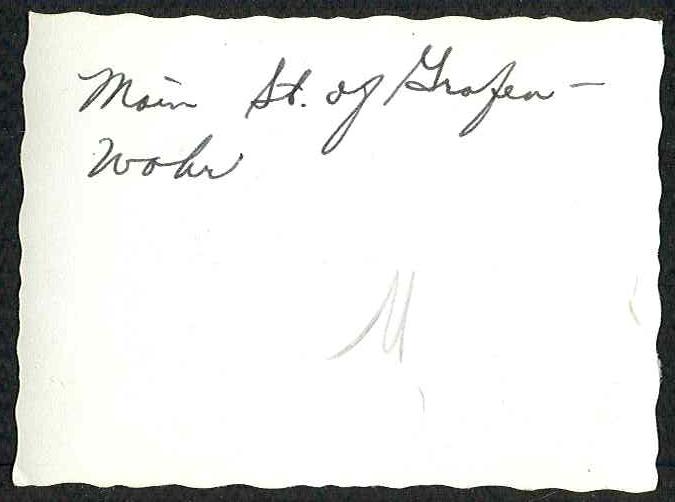 Main St. of Grafen-
Wohr
M